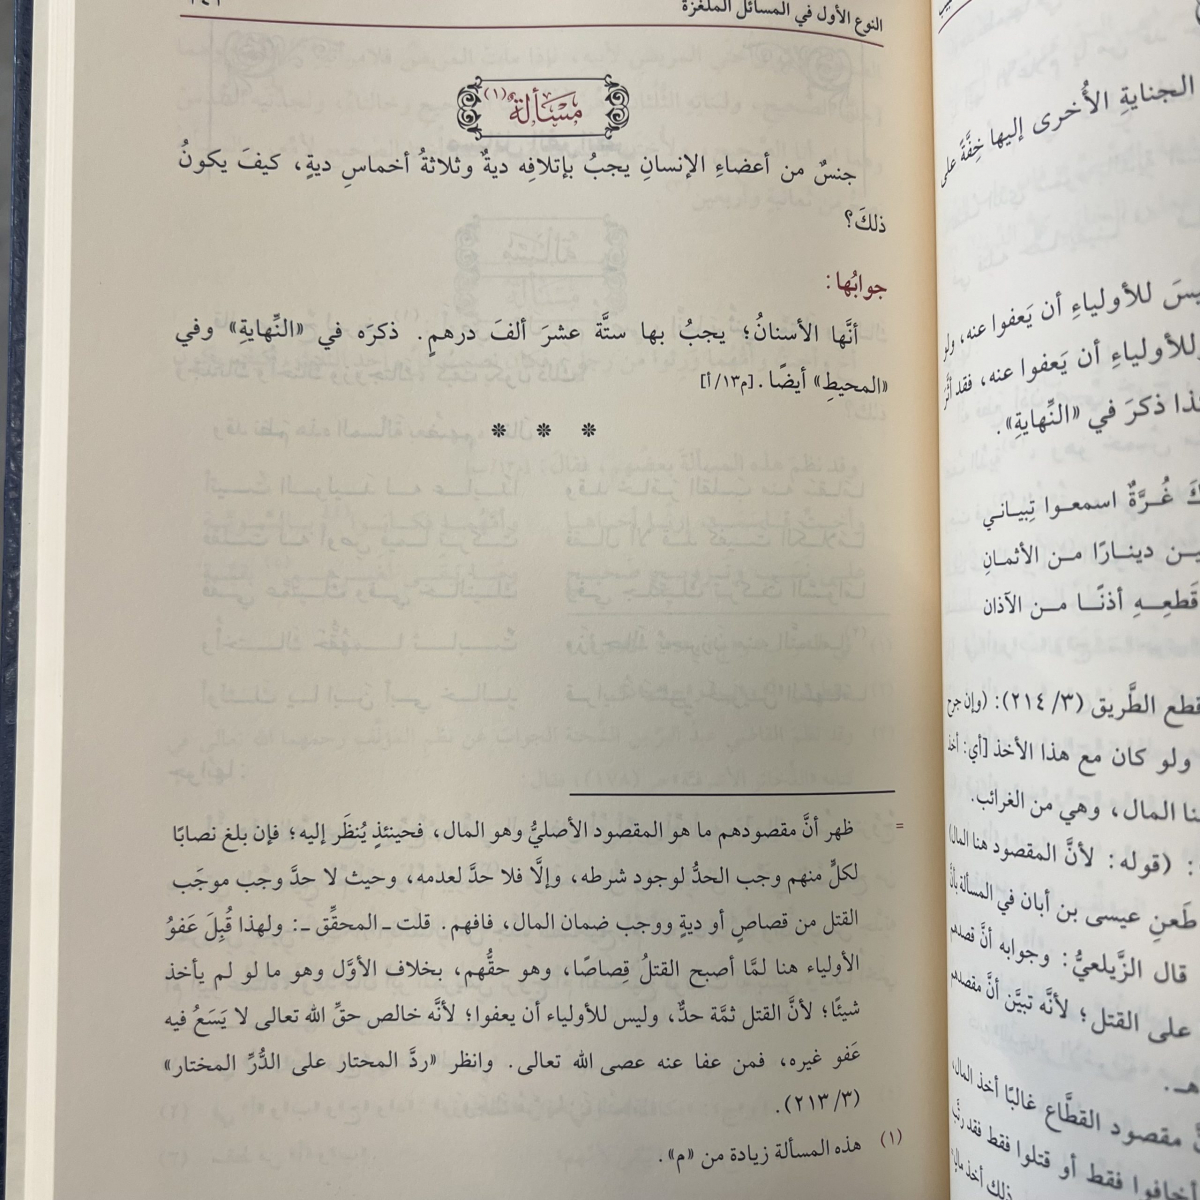 النوع الأول في المسائل الملغزة
مَسْألة (١)
جنسٌ من أعضاءِ الإنسانِ يجبُ بإتلافِه ديةٌ وثلاثةُ أخماسِ ديةٍ، كيفَ يكونُ
ذلكَ؟
جوابُها:
أنَّها الأسنانُ؛ يجبُ بها ستَّة عشرَ ألفَ درهمٍ. ذكرَه في «النِّهايةِ» وفي
«المحيطِ» أيضًا. [م١٣/أ]
* * *
= ظهر أنَّ مقصودهم ما هو المقصود الأصليُّ وهو المال، فحينئذٍ يُنظَر إليه؛ فإن بلغ نصابًا
لكلٍّ منهم وجب الحدُّ لوجود شرطه، وإلَّا فلا حدَّ لعدمه، وحيث لا حدَّ وجب موجَب
القتل من قصاصٍ أو ديةٍ ووجب ضمان المال، فافهم. قلت ـ المحقِّق ـ: ولهذا قُبِلَ عَفوُ
الأولياء هنا لمَّا أصبح القتلُ قِصاصًا، وهو حقُّهم، بخلاف الأوَّل وهو ما لو لم يأخذ
شيئًا؛ لأنَّ القتل ثمَّة حدٌّ، وليس للأولياء أن يعفوا؛ لأنَّه خالص حقِّ الله تعالى لا يَسَعُ فيه
عَفو غيره، فمن عفا عنه عصى الله تعالى. وانظر «ردَّ المحتار على الدُّرِّ المختار»
(٣/ ٢١٣).
(١) هذه المسألة زيادة من «م».
الجنايةِ الأُخرى إليها خِفَّةً على
للأولياءِ أن يَعفوا عنه، ولو
للأولياءِ أن يَعفوا عنه، فقد أثَّر
ذكرَ في «النِّهايةِ».
غُرَّةٌ اسمعوا تِبياني
دينارًا من الأثمانِ
قَطعِهِ أذنًا من الآذان
قطع الطَّريق (٣/ ٢١٤): (وإن جرح
ولو كان مع هذا الأخذ [أي: أخذ
المال، وهي من الغرائب.
: (قوله: لأنَّ المقصود هنا المال)
طَعنِ عيسى بن أبان في المسألة بأنَّ
قال الزَّيلعيُّ: وجوابه أنَّ قصدهم
على القتل؛ لأنَّه تبيَّن أنَّ مقصدهم
مقصود القطَّاع غالبًا أخذ المال،
أخافوا فقط أو قتلوا فقط فقد رتَّب